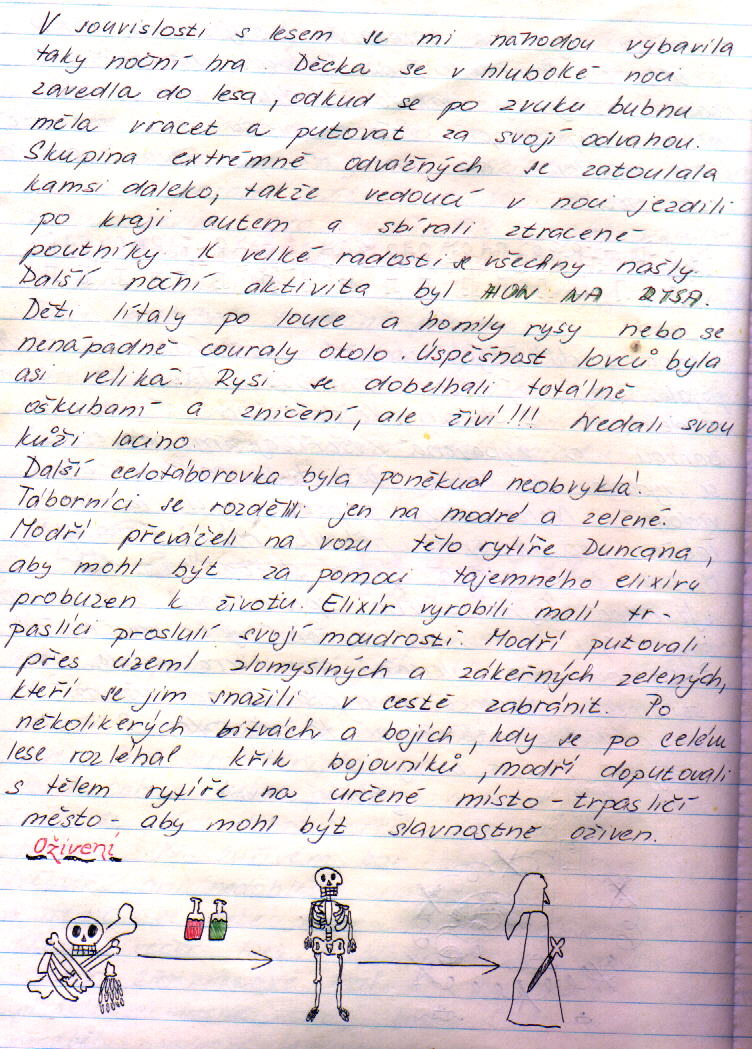 V souvislosti s lesem se mi náhodou vybavila
taky noční hra. Děcka se v hluboké noci
zavedla do lesa, odkud se po zvuku bubnu
měla vracet a putovat za svojí odvahou.
Skupina extrémně odvážných se zatoulala
kamsi daleko, takže vedoucí v noci jezdili
po kraji autem a sbírali ztracené
poutníky. K velké radosti se všechny našly.
Další noční aktivita byl HON NA RYSA.
Děti lítaly po louce a honily rysy nebo se
nenápadně couraly okolo. Úspěšnost lovců byla
asi veliká. Rysi se dobelhali totálně
oškubaní a zničení, ale živí!!! Nedali svou
kůži lacino
Další celotáborovka byla poněkud neobvyklá.
Táborníci se rozdělili jen na modré a zelené.
Modří převáželi na vozu tělo rytíře Duncana,
aby mohl být za pomoci tajemného elixíru
probuzen k životu. Elixír vyrobili malí tr-
paslíci proslulí svojí moudrostí. Modří putovali
přes území zlomyslných a zákeřných zelených,
kteří se jim snažili v cestě zabránit. Po
několikerých bitvách a bojích, kdy se po celém
lese rozléhal křik bojovníků, modří doputovali
s tělem rytíře na určené místo - trpasličí
město - aby mohl být slavnostně oživen.
Oživení